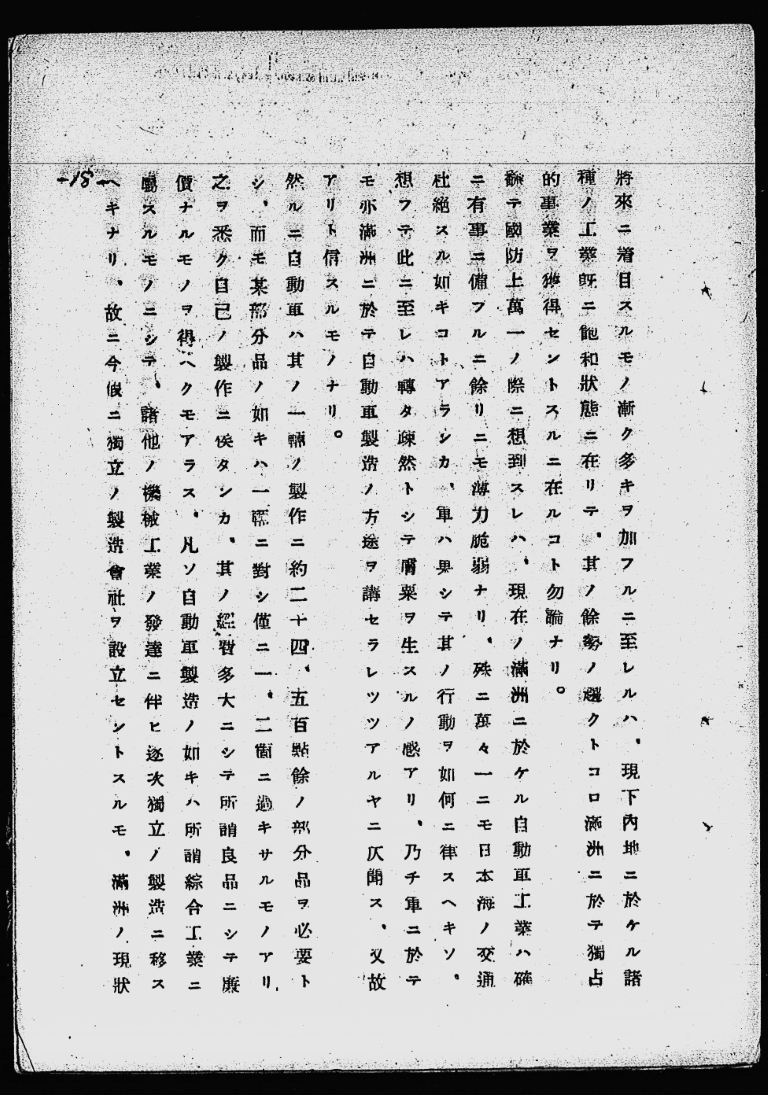 將來ニ着目スルモノ漸ク多キヲ加フルニ至レルハ、現下內地ニ於ケル諸
種ノ工業既ニ飽和狀態ニ在リテ、其ノ餘勢ノ選クトコロ滿洲ニ於テ獨占
的事業ヲ獲得セントスルニ在ルコト勿論ナリ。
飜テ國防上萬一ノ際ニ想到スレハ、現在ノ滿洲ニ於ケル自動車工業ハ確
ニ有事ニ備フルニ餘リニモ薄力脆弱ナリ、殊ニ萬々一ニモ日本海ノ交通
杜絕スル如キコトアランカ、軍ハ果シテ其ノ行動ヲ如何ニ律スヘキソ、
想フテ此ニ至レハ轉タ竦然トシテ膚粟ヲ生スルノ感アリ、乃チ軍ニ於テ
モ亦滿洲ニ於テ自動車製造ノ方途ヲ講セラレツツアルヤニ仄聞ス、又故
アリト信スルモノナリ。
然ルニ自動車ハ其ノ一輛ノ製作ニ約二十四、五百點餘ノ部分品ヲ必要ト
シ、而モ某部分品ノ如キハ一輛ニ對シ僅ニ一、二箇ニ過キサルモノアリ
之ヲ悉ク自己ノ製作ニ俟タンカ、其ノ經費多大ニシテ所謂良品ニシテ廉
價ナルモノヲ得ヘクモアラス、凡ソ自動車製造ノ如キハ所謂綜合工業ニ
屬スルモノニシテ、諸他ノ機械工業ノ發達ニ伴ヒ逐次獨立ノ製造ニ移ス
ヘキナリ、故ニ今假ニ獨立ノ製造會社ヲ設立セントスルモ、滿洲ノ現狀
-18-